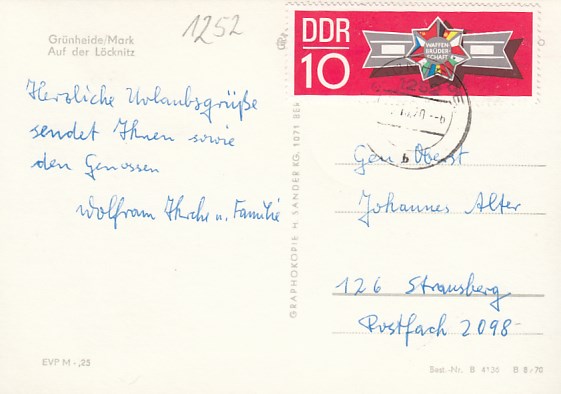 Grünheide/Mark
Auf der Löcknitz
1252
DDR
10
WAFFEN
BRÜDER
SCHAFT
Herzliche Urlaubsgrüße
sendet Ihnen sowie
den Genossen
Wolfram u. Familie
GRAPHOKOPIE H. SANDER KG, 1071 BER
Gen. Oberst
Johannes Alter
126 Strausberg
Postfach 2098
EVP M -,25
Best.-Nr. B 4136 B 8/70